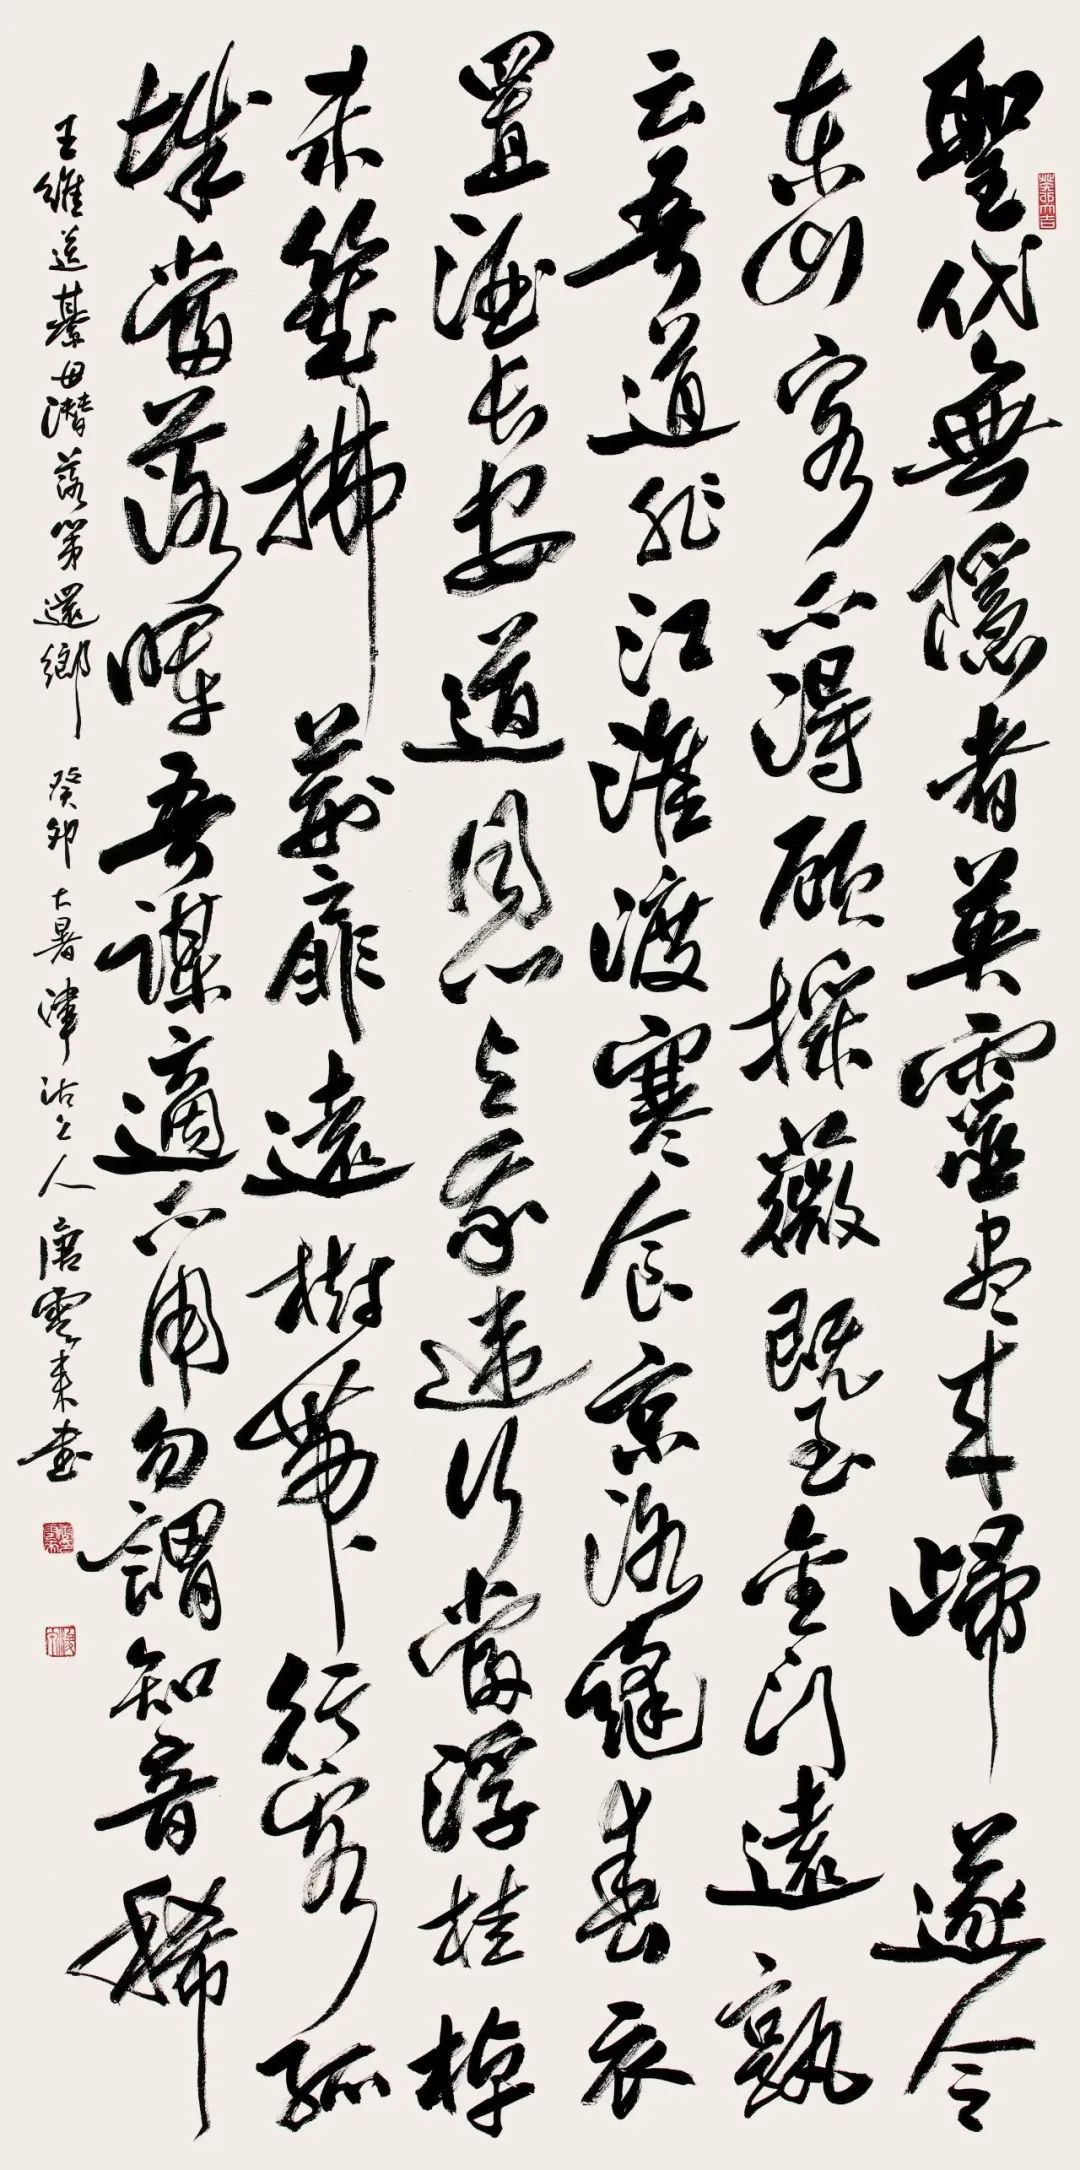 聖代無隱者英靈盡来歸遂令
東山客不得顧採薇既至金門遠孰
云吾道非江淮渡寒食京洛縫春衣
置酒長安道同心与我違行當浮桂棹
未幾拂荊扉遠樹帶行客孤
城當落暉吾謀適不用勿謂知音稀
王維送綦毋潛落第還鄉 癸卯大暑津沽上人唐雲来書
癸卯大吉